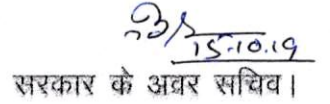 15.10.19
सरकार के अवर सचिव।